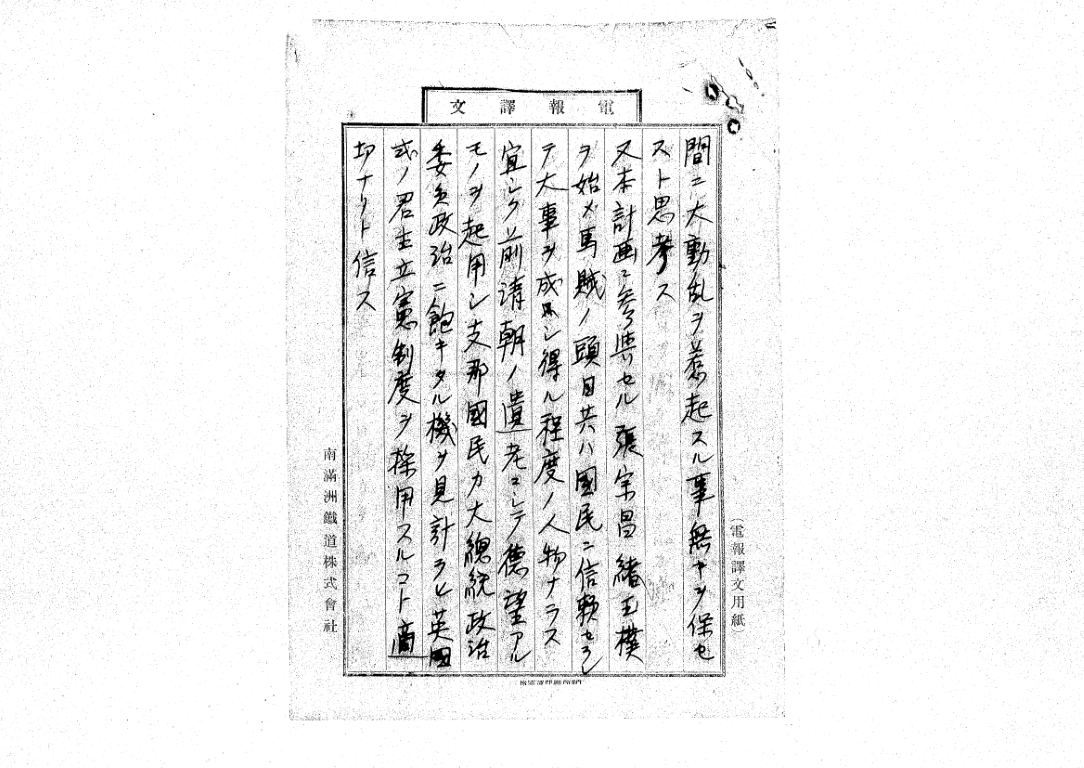 電報譯文
(電報譯文用紙)
間ニ大動乱ヲ惹起スル事無キヲ保セ
スト思考ス
又本計画ニ参与セル張宗昌緒玉樸
ヲ始メ馬賊ノ頭目共ハ國民ニ信頼セラレ
テ大事ヲ成シ得ル程度ノ人物ナラス
宜シク前清朝ノ遺老ニシテ德望アル
モノヲ起用シ支那國民カ大總統政治
委員政治ニ飽キタル機ヲ見計ラヒ英國
式ノ君主立憲制度ヲ採用スルコト適
切ナリト信ス
南滿洲鐵道株式會社